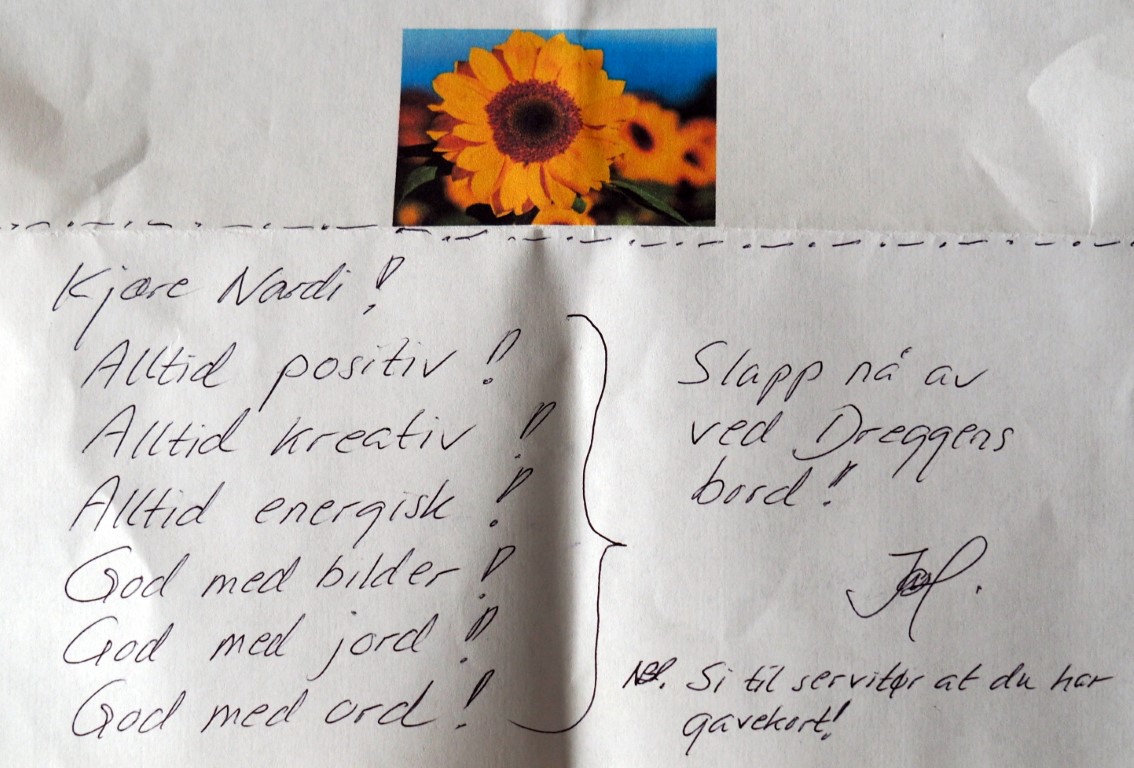 Kjære Nardi!
Alltid positiv!
Alltid kreativ!
Alltid energisk!
God med bilder!
God med jord!
God med ord!
Slapp nå av
ved Dreggens
bord!
Si til servitør at du har
gavekort!